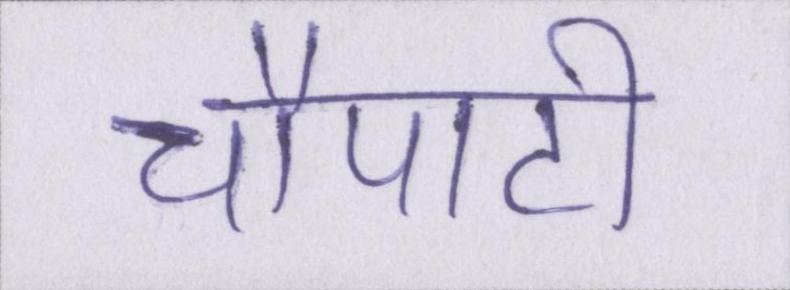 चौपाटी